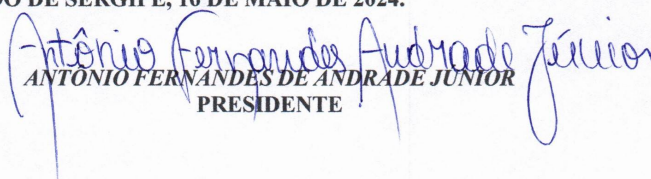 DO DE SERGIPE, 16 DE MAIO DE 2024.
Antônio Fernandes Andrade Júnior
ANTONIO FERNANDES DE ANDRADE JUNIOR
PRESIDENTE